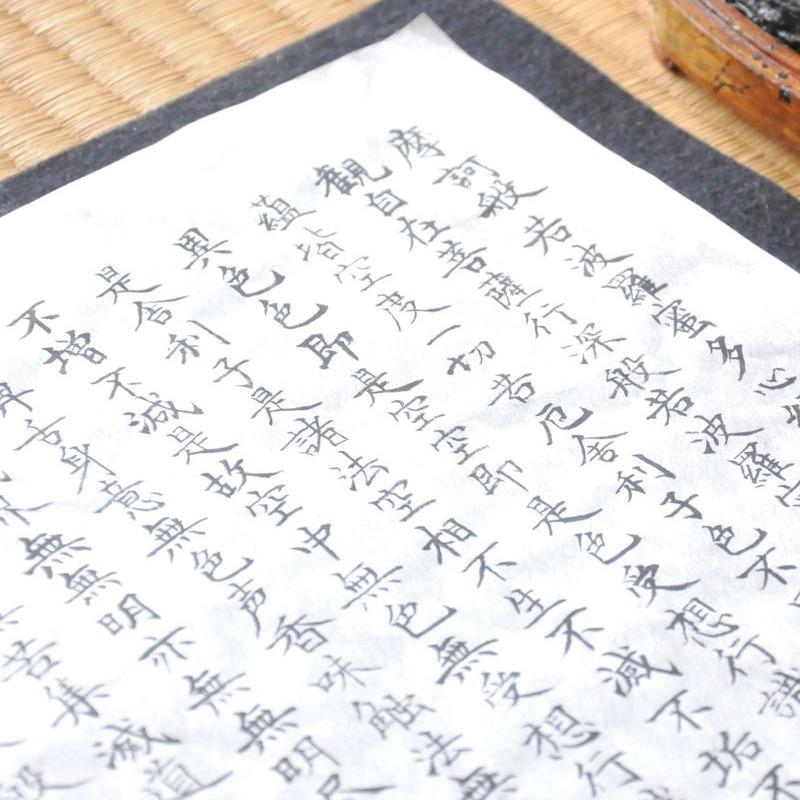 摩訶般若波羅蜜多心
観自在菩薩行深般若波羅
蘊皆空度一切苦厄舎利子色不
異色色即是空空即是色受想行識
是舎利子是諸法空相不生不滅不垢不
不増不減是故空中無色無受想行
鼻舌身意無色声香味触法無
無無明亦無無明尽
苦集滅道
般